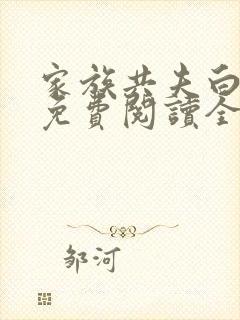 家族共夫白
免費閱讀全
邹河